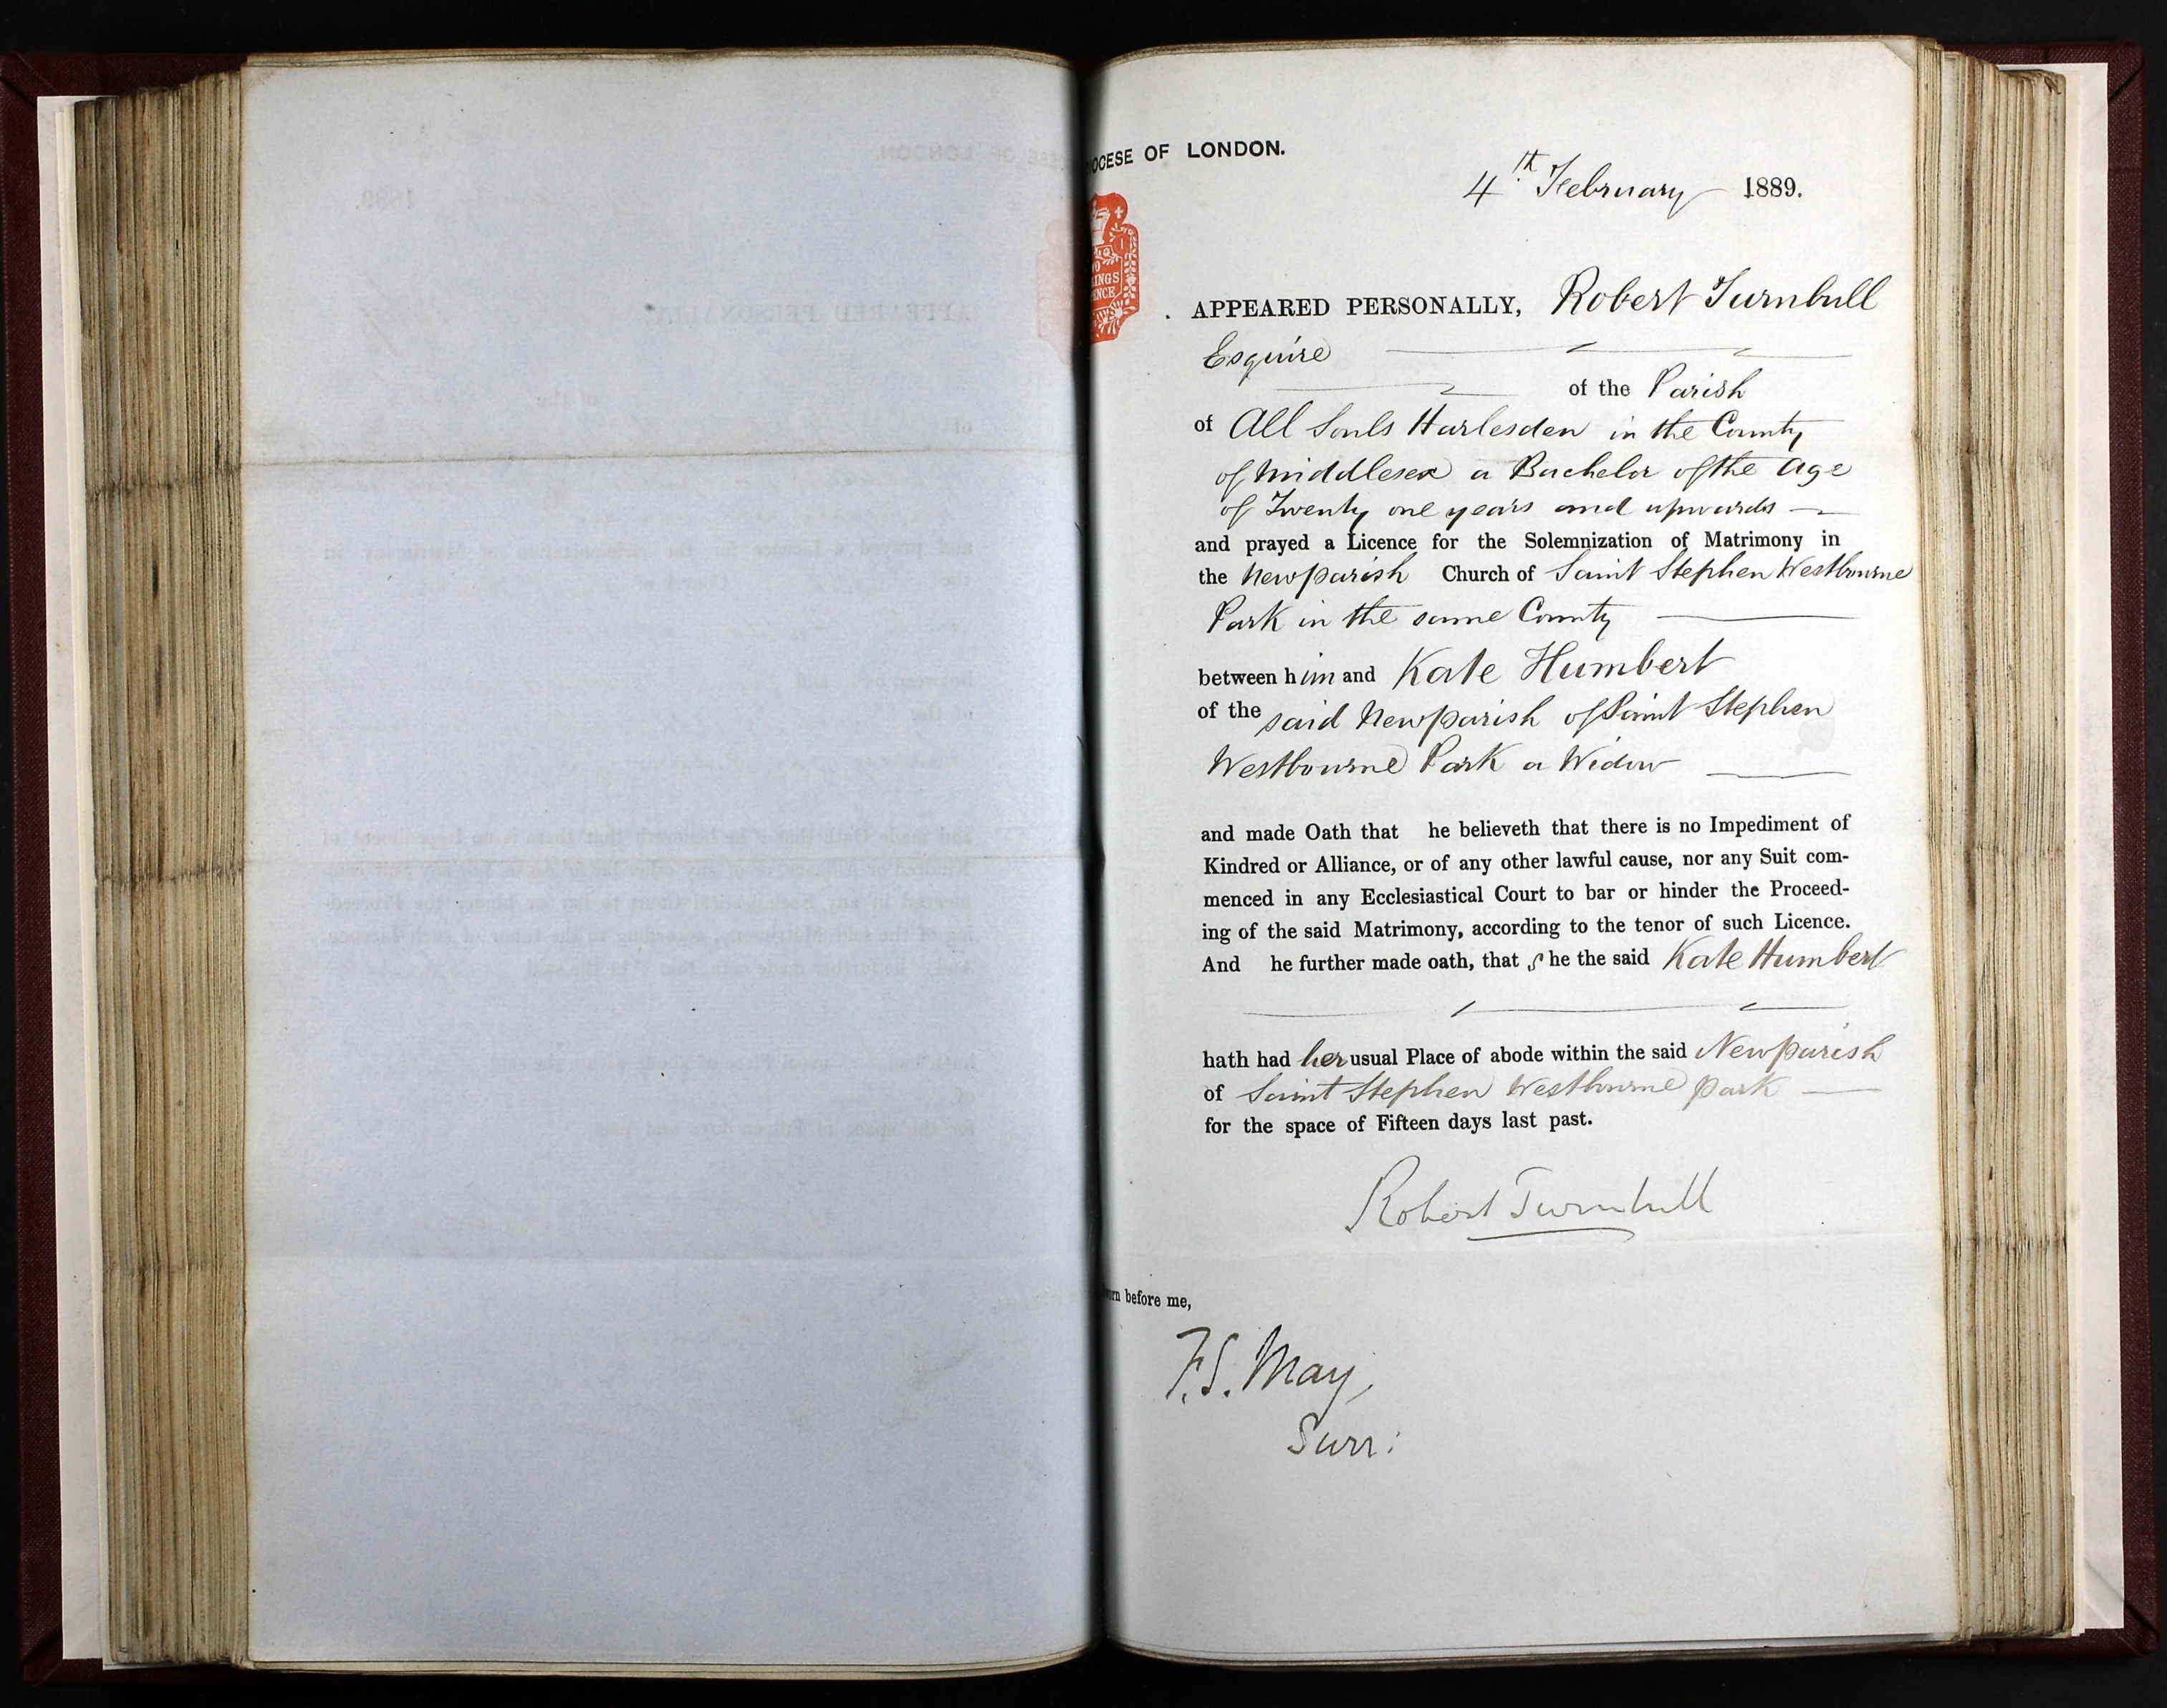 OCESE OF LONDON.
4th February 1889.
INGS
ENCE
APPEARED PERSONALLY, Robert Turnbull
Esquire
of the Parish
of All Souls Harlesden in the County
of Middlesex a Bachelor of the Age
of Twenty one years and upwards
and prayed a Licence for the Solemnization of Matrimony in
the New parish Church of Saint Stephen Westbourne
Park in the same County
between him and Kate Humbert
of the said New parish of Saint Stephen
Westbourne Park a Widow
and made Oath that he believeth that there is no Impediment of
Kindred or Alliance, or of any other lawful cause, nor any Suit com-
menced in any Ecclesiastical Court to bar or hinder the Proceed-
ing of the said Matrimony, according to the tenor of such Licence.
And he further made oath, that she the said Kate Humbert
hath had her usual Place of abode within the said New parish
of Saint Stephen Westbourne Park
for the space of Fifteen days last past.
Robert Turnbull
orn before me,
F.S. May,
Surr: